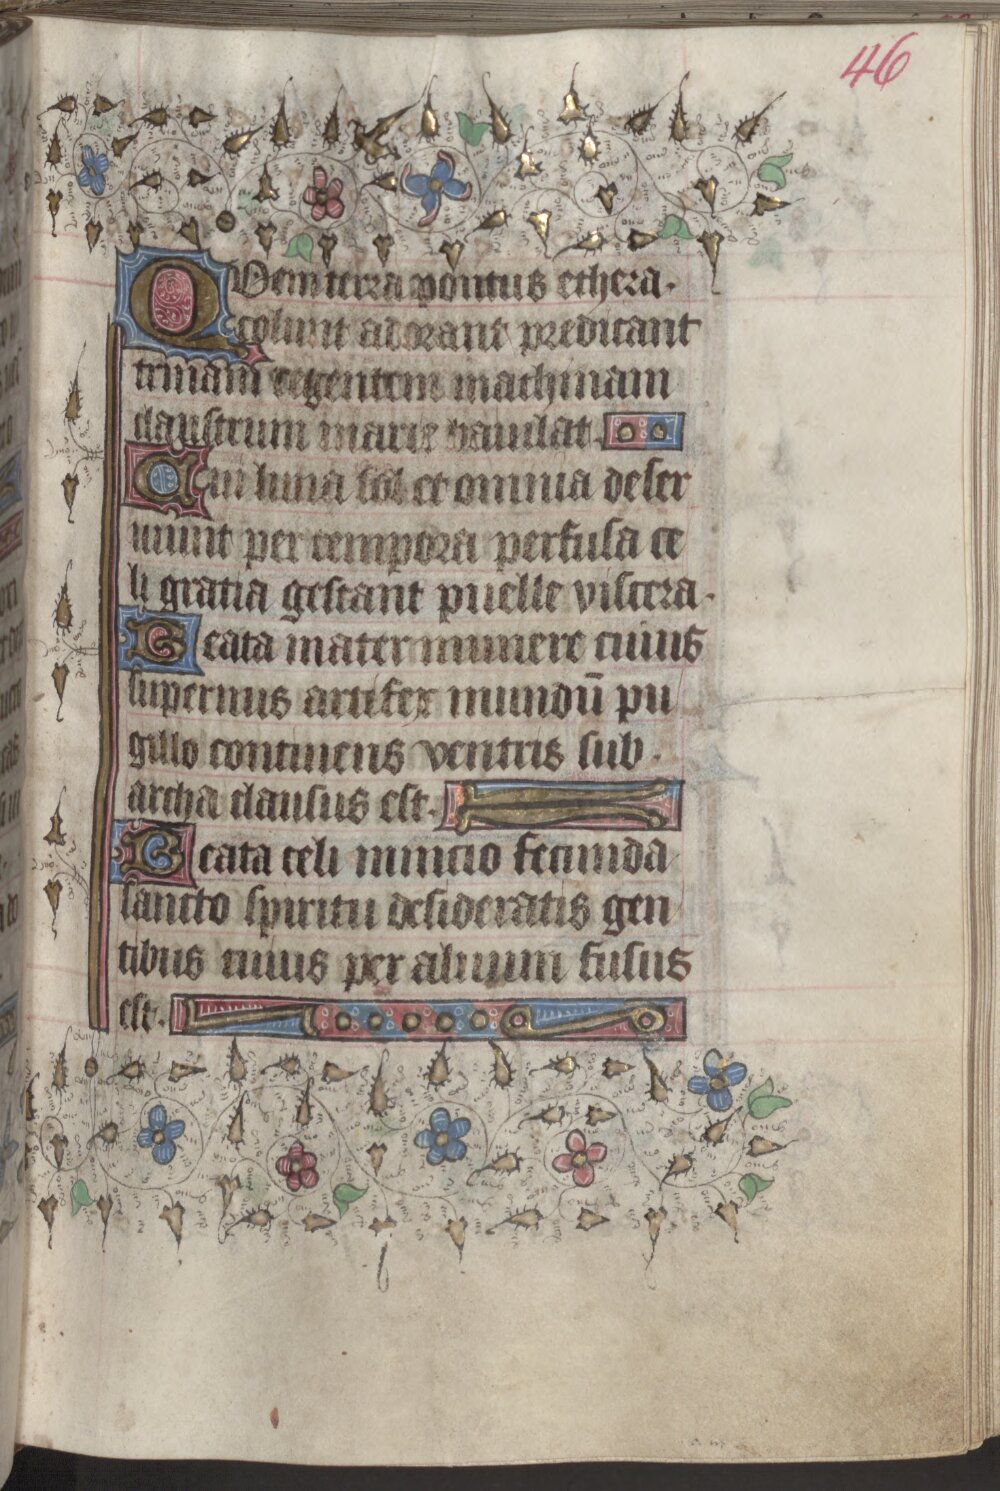 46
Quem terra pontus ethera.
colunt adorant predicant
trinam regentem machinam
claustrum marie baiulat.
Cui luna sol et omnia deser
uiunt per tempora perfusa ce
li gratia gestant puelle viscera.
Beata mater munere cuius
supernus artifex mundū pu
gillo continens ventris sub.
archa clausus est.
Beata celi nuncio fecunda
sancto spiritu desideratis gen
tibus cuius per aluum fusus
est.